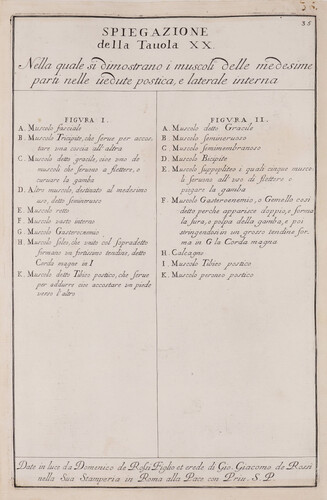 35
SPIEGAZIONE
della Tauola XX.
Nella quale si dimostrano i muscoli delle medesime
parti nelle uedute postica, e laterale interna
FIGVRA I.
A. Muscolo fasciale
B. Muscolo Tricipite, che serue per accos-
tare una coscia all'altra
C. Muscolo detto gracile, cioe uno de
muscoli che seruono a flettere, o
curuare la gamba
D. Altro muscolo, destinato al medesimo
uso, detto semineruoso
E. Muscolo retto
F. Muscolo uasto interno
G. Muscolo Gasterocnemio
H. Muscolo soleo, che unito col sopradetto
formano un fortissimo tendine, detto
Corda magna in I
K. Muscolo detto Tibieo postico, che serue
per addurre cioe accostare un piede
uerso l'altro
FIGVRA II.
A. Muscolo detto Gracile
B. Muscolo Semineruoso
C. Muscolo Semimembranoso
D. Muscolo Bicipite
E. Muscolo Suppoplites i quali cinque musco-
li seruono all'uso di flettere o
piegare la gamba
F. Muscolo Gasteroenemio, o Gemello cosi
detto perche apparisce doppio, e forma
la sura, o polpa della gamba, e poi
stringendosi in un grosso tendine for-
ma in G la Corda magna
H. Calcagno
I. Muscolo Tibieo postico
K. Muscolo peroneo postico
Date in luce da Domenico de Rossi Figlio et erede di Gio. Giacomo de Rossi
nella Sua Stamperia in Roma alla Pace con Priu. S. P.